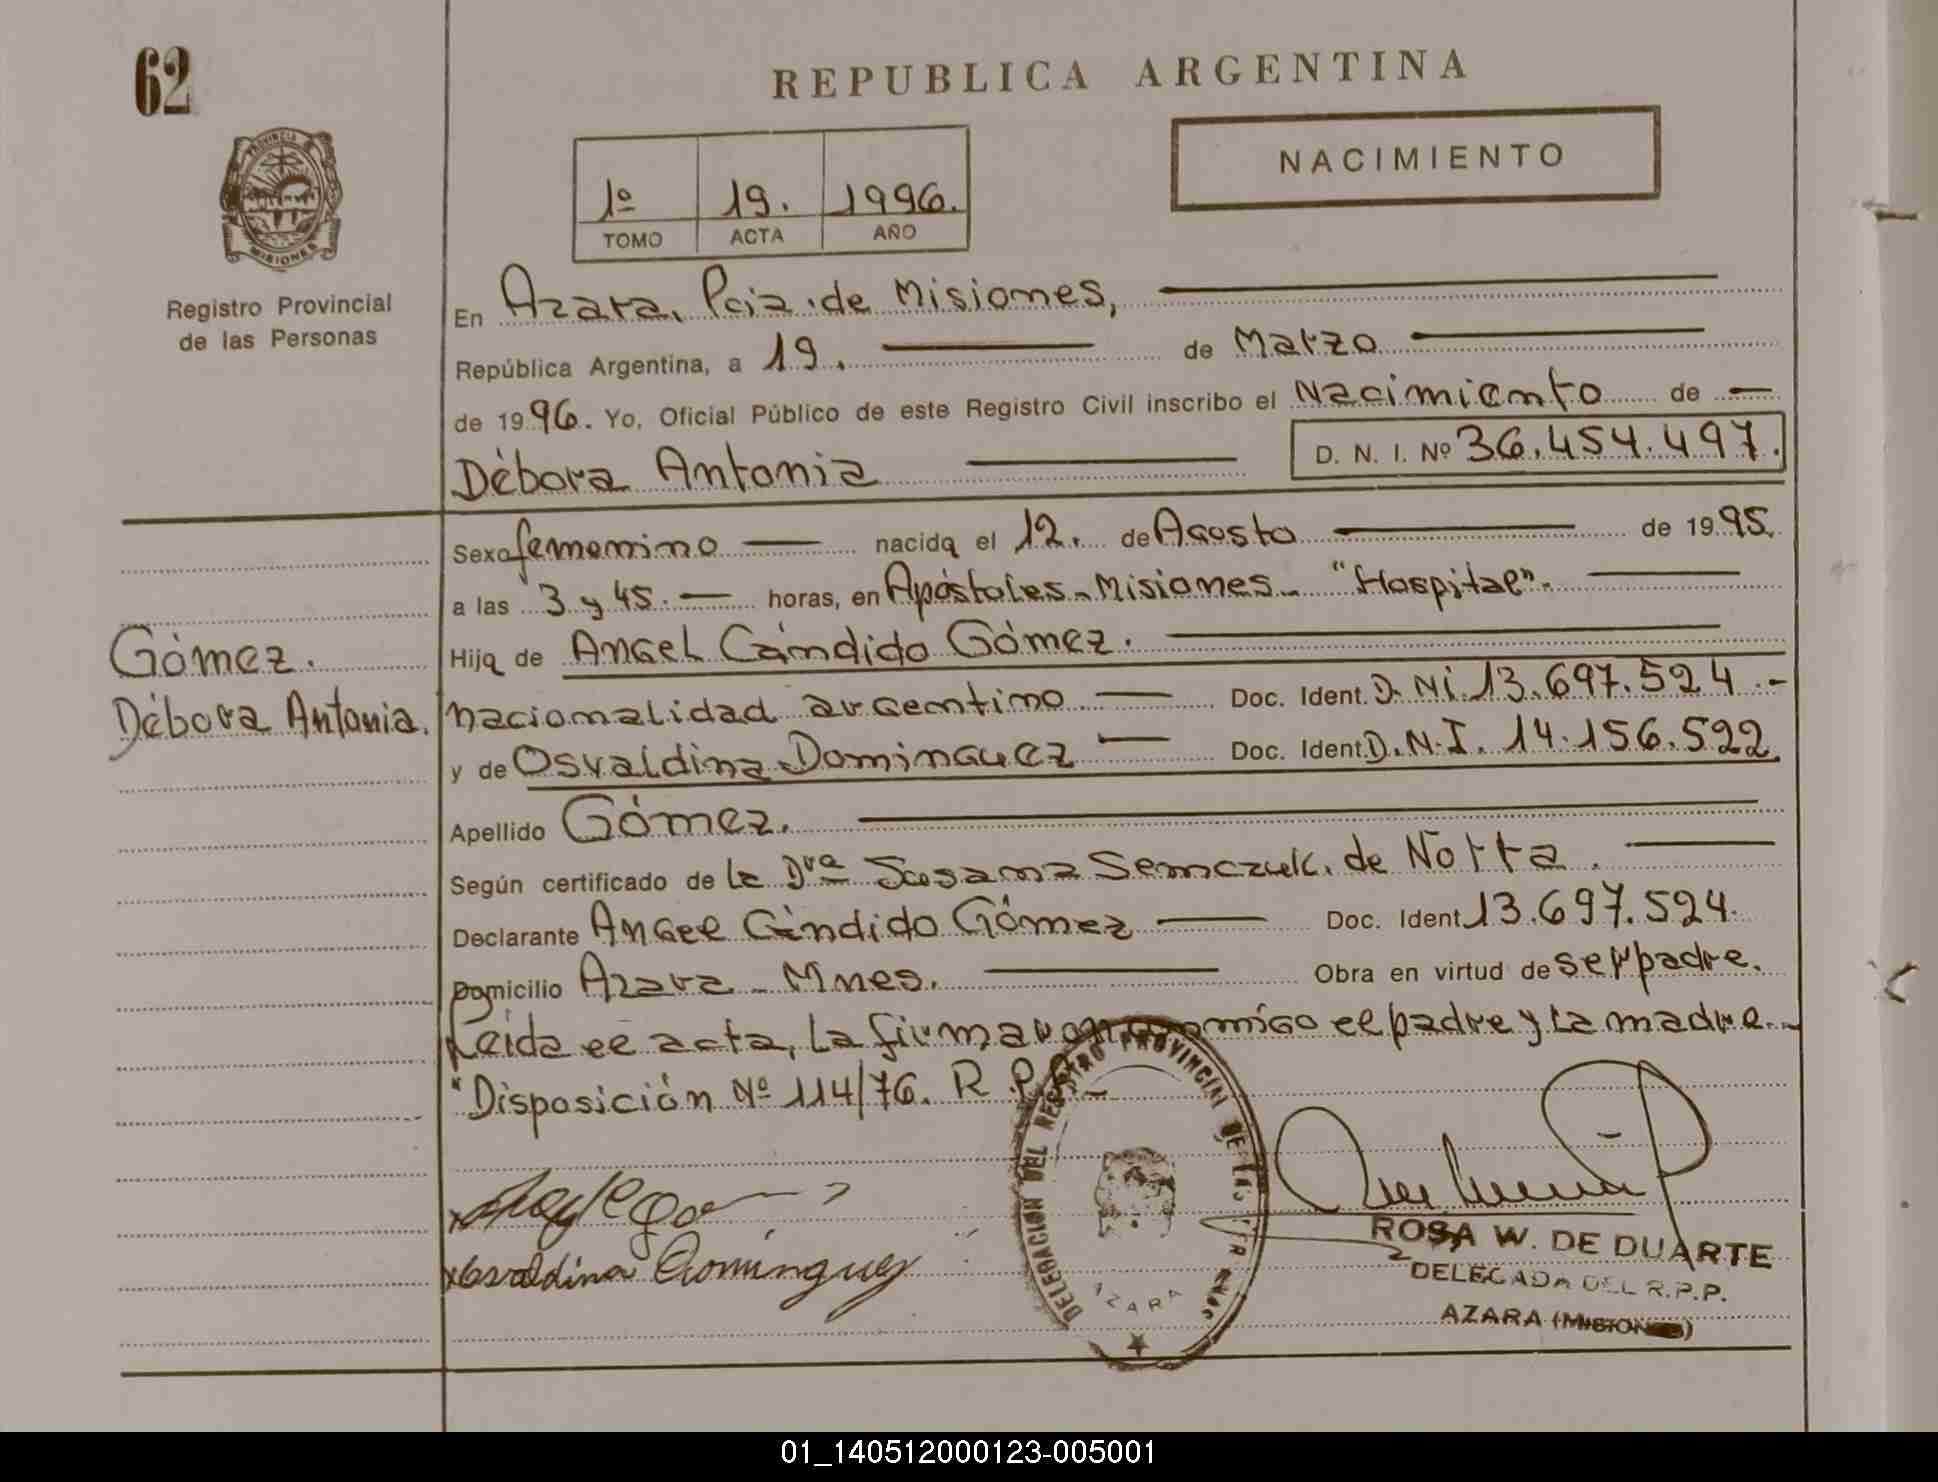 62
REPUBLICA ARGENTINA
NACIMIENTO
1º 19. 1996.
TOMO ACTA AÑO
PROVINCIA
MISIONES
Registro Provincial
de las Personas
En Azara, Pcia. de Misiones,
República Argentina, a 19. de Marzo
de 1996. Yo, Oficial Público de este Registro Civil inscribo el Nacimiento de
Débora Antonia D. N. I. Nº 36.454.497.
Sexo femenino nacida el 12. de Agosto de 1995.
a las 3 y 45. horas, en Apóstoles - Misiones - "Hospital".
Gómez.
Débora Antonia.
Hija de Angel Cándido Gómez.
nacionalidad argentino Doc. Ident. D. NI. 13.697.524.-
y de Osvaldina Dominguez Doc. Ident. D.N.I. 14.156.522.
Apellido Gómez.
Según certificado de la Dra Susana Semczuk. de Notta.
Declarante Angel Cándido Gómez Doc. Ident 13.697.524.
Domicilio Azara - Mnes. Obra en virtud de ser padre.
Leida el acta, la firmaron conmigo el padre y la madre.-
"Disposición Nº 114/76. R.P.P.
Osvaldina Dominguez
DELEGACIÓN DEL REGISTRO PROVINCIAL DE LAS PERSONAS
AZARA
ROSA W. DE DUARTE
DELEGADA DEL R.P.P.
AZARA (MISIONES)
01_140512000123-005001